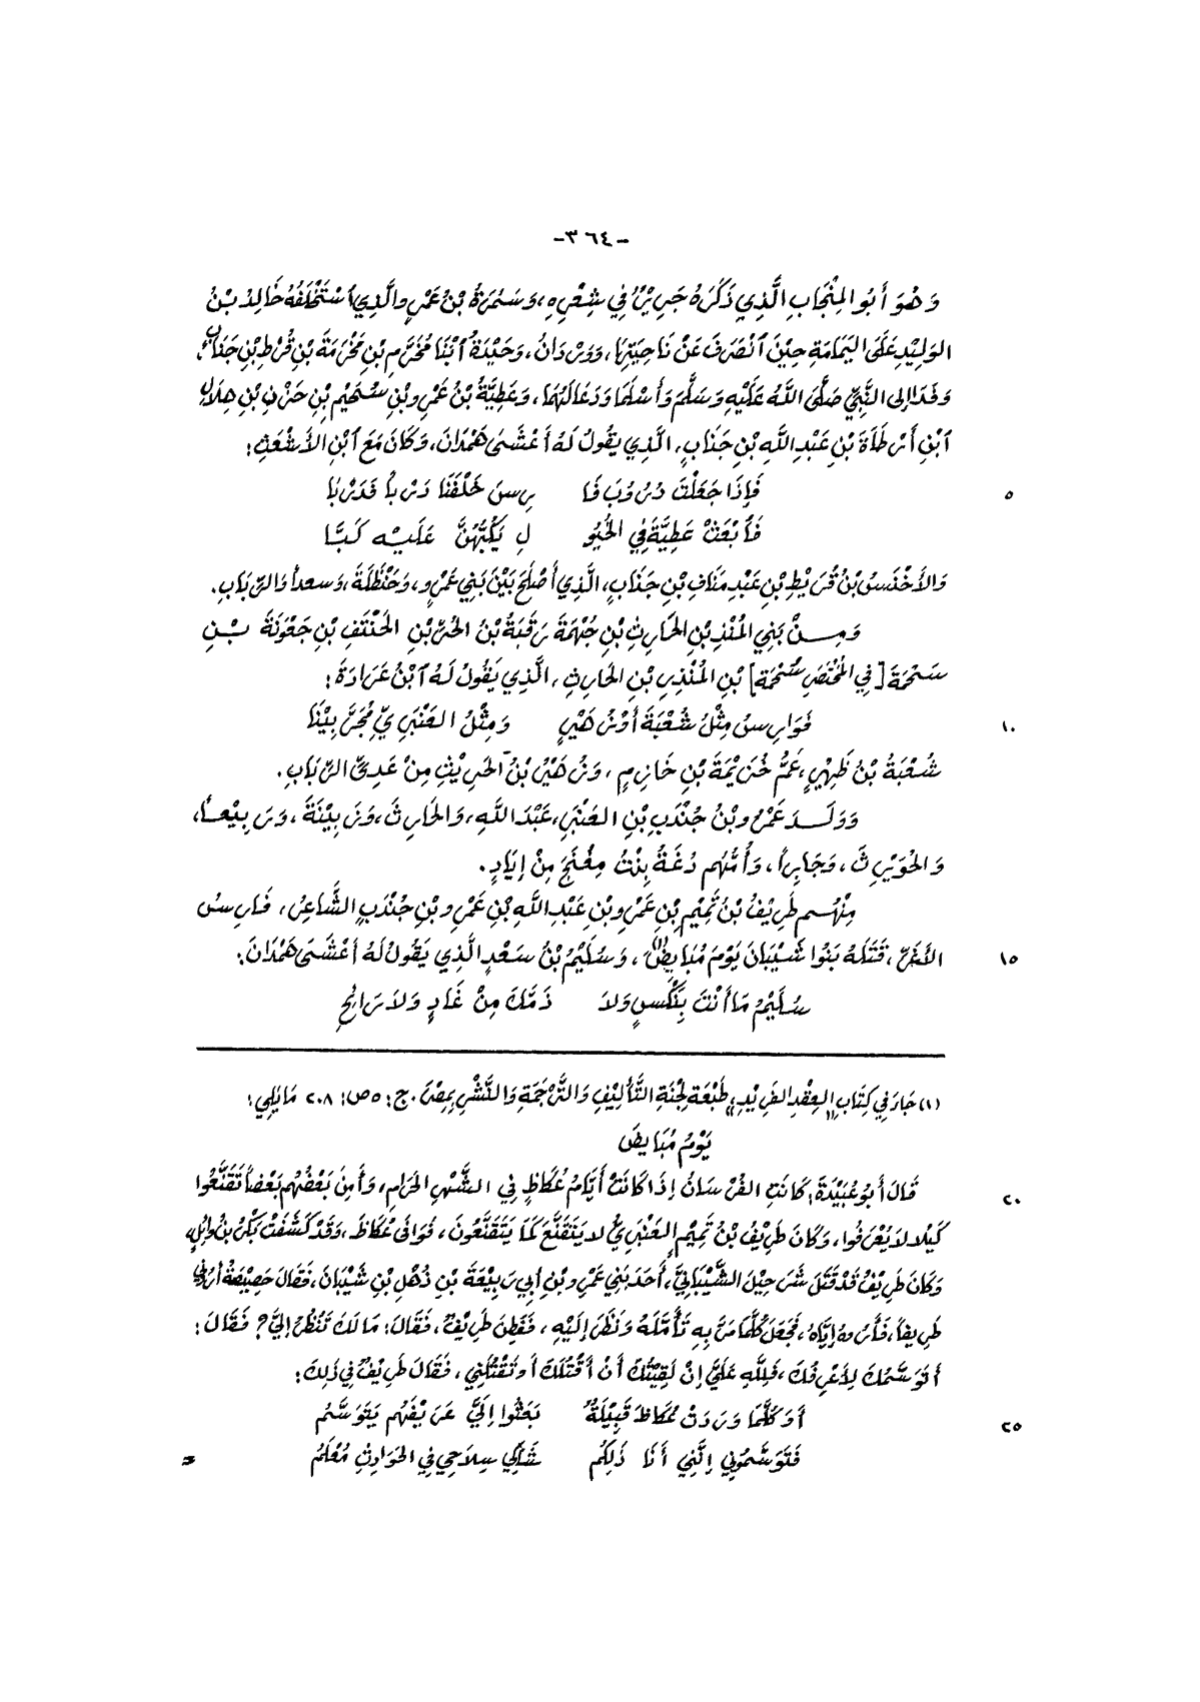 -٣٦٤-
وَهُوَ أَبُو المِنْجَابِ الَّذِي ذَكَرَهُ جَرِيْرٌ فِي شِعْرِهِ، وَسَمُرَةُ بْنُ عَمْرٍو الَّذِي ٱسْتَخْلَفَهُ خَالِدُ بْنُ
الوَلِيْدِ عَلَى اليَمَامَةِ حِيْنَ ٱنْصَرَفَ عَنْ نَاحِيَتِهَا، وَوَرْدَانُ، وَحَيْدَةُ ٱبْنَا مُخَرَّمِ بْنِ مَخْرَمَةَ بْنِ قُرْطِ بْنِ جَنَابٍ،
وَفَدَا إِلى النَّبِيِّ صَلَّى اللَّهُ عَلَيْهِ وَسَلَّمَ وَأَسْلَمَا وَدَعَا لَهُمَا، وَعَطِيَّةُ بْنُ عَمْرِو بْنِ سُحَيْمِ بْنِ حَزْنِ بْنِ هِلَالِ
ٱبْنِ أَرْطَأَةَ بْنِ عَبْدِ اللَّهِ بْنِ جَنَابٍ، الَّذِي يَقُولُ لَهُ أَعْشَى هَمْدَانَ، وَكَانَ مَعَ ٱبْنِ الأَشْعَثِ:
فَإِذَا جَعَلْتَ دُرُوبَ فَا رِسَ خَلْفَنَا دَرْباً فَدَرْبَا ٥
فَٱبْعَثْ عَطِيَّةَ فِي الخُيُو لِ يَكُبُّهُنَّ عَلَيْهِ كَبَّا
وَالأَخْنَسُ بْنُ قُرَيْطِ بْنِ عَبْدِ مَنَافِ بْنِ جَنَابٍ، الَّذِي أَصْلَحَ بَيْنَ بَنِي عَمْرٍو، وَحَنْظَلَةَ، وَسعداً وَالرِّبَابِ.
وَمِنْ بَنِي المُنْذِرِ بْنِ الحَارِثِ بْنِ جُهْمَةَ رَقَبَةُ بْنُ الحُرِّ بْنِ الحَنْتَفِ بْنِ جَعْوَنَةَ بْنِ
سَحْمَةَ [فِي المُخْتَصَرِ سُحْمَةَ] بْنِ المُنْذِرِ بْنِ الحَارِثِ، الَّذِي يَقُولُ لَهُ ٱبْنُ عَرَادَةَ:
فَوَارِسُ مِثْلُ شُعْبَةَ أَوْ زُهَيْرٍ وَمِثْلُ العَنْبَرِيِّ مُجَرَّبِيْنَا ١٠
شُعْبَةُ بْنُ ظَهِيْرٍ، عَمُّ خُزَيْمَةَ بْنِ خَازِمٍ، وَزُهَيْرُ بْنُ الحُرَيْثِ مِنْ عَدِيِّ الرِّبَابِ.
وَوَلَدَ عَمْرُو بْنُ جُنْدَبِ بْنِ العَنْبَرِ، عَبْدَ اللَّهِ، وَالحَارِثَ، وَزَبِيْنَةَ، وَرَبِيْعاً،
وَالحُوَيْرِثَ، وَجَابِراً، وَأُمُّهُم دُغَةُ بِنْتُ مِغْنَجٍ مِنْ إِيَادٍ.
مِنْهُم طَرِيْفُ بْنُ تَمِيْمِ بْنِ عَمْرِو بْنِ عَبْدِ اللَّهِ بْنِ عَمْرِو بْنِ جُنْدَبٍ الشَّاعِرُ، فَارِسُ
الأَغَرِّ، قَتَلَهُ بَنُوا شَيْبَانَ يَوْمَ مُبَايِضٍ(١)، وَسُلَيْمُ بْنُ سَعْدٍ الَّذِي يَقُولُ لَهُ أَعْشَى هَمْدَانَ: ١٥
سُلَيْمُ مَا أَنْتَ بِنَكْسٍ وَلَا ذَمَّكَ مِنْ غَادٍ وَلَا رَائِحِ
(١) جَاءَ فِي كِتَابِ «العِقْدِ الفَرِيْدِ» طَبْعَة لَجْنَةِ التَّأْلِيْفِ وَالتَّرْجَمَةِ وَالنَّشْرِ بِمِصْرَ. ج: ٥ ص: ٢٠٨ مَا يَلِي:
يَوْمُ مُبَايضَ
قَالَ أَبُو عُبَيْدَةَ: كَانَتِ الفُرْسَانُ إِذَا كَانَتْ أَيَّامُ عُكَاظٍ فِي الشَّهْرِ الحَرَامِ، وَأَمِنَ بَعْضُهُم بَعْضاً تَقَنَّعُوا ٢٠
كَيْلَا يُعْرَفُوا، وَكَانَ طَرِيْفُ بْنُ تَمِيْمٍ العَنْبَرِيُّ لا يَتَقَنَّع كَمَا يَتَقَنَّعُونَ، فَوَافَى عُكَاظَ، وَقَدْ كَشَفَتْ بَكْرُ بْنُ وَائِلٍ،
وَكَانَ طَرِيْفٌ قَدْ قَتَلَ شَرَحِيْلَ الشَّيْبَانِيَّ، أَحَدَ بَنِي عَمْرِو بْنِ أَبِي رَبِيْعَةَ بْنِ ذُهْلِ بْنِ شَيْبَانَ، فَقَالَ حَصِيْصَةُ أَرُونِي
طَرِيفاً، فَأَرَوهُ إِيَّاهُ، فَجَعَلَ كُلَّمَا مَرَّ بِهِ تَأَمَّلَهُ وَنَظَرَ إِلَيْهِ، فَفَطِنَ طَرِيْفٌ، فَقَالَ: مَا لَكَ تَنْظُرُ إِليَّ؟ فَقَالَ:
أَتَوَسَّمُكَ لِأَعْرِفَكَ، فَلِلَّهِ عَلَيَّ إِنْ لَقِيْتُكَ أَنْ أَقْتُلَكَ أَو تَقْتُلَنِي، فَقَالَ طَرِيْفٌ فِي ذَلِكَ:
أَوَ كُلَّمَا وَرَدَتْ عُكَاظَ قَبِيْلَةٌ بَعَثُوا إِلَيَّ عَرِيْفَهُم يَتَوَسَّمُ ٢٥
فَتَوَسَّمُونِي إِنَّنِي أَنَا ذَلِكُم شَاكِي سِلَاحِي فِي الحَوَادِثِ مُعْلَمُ =